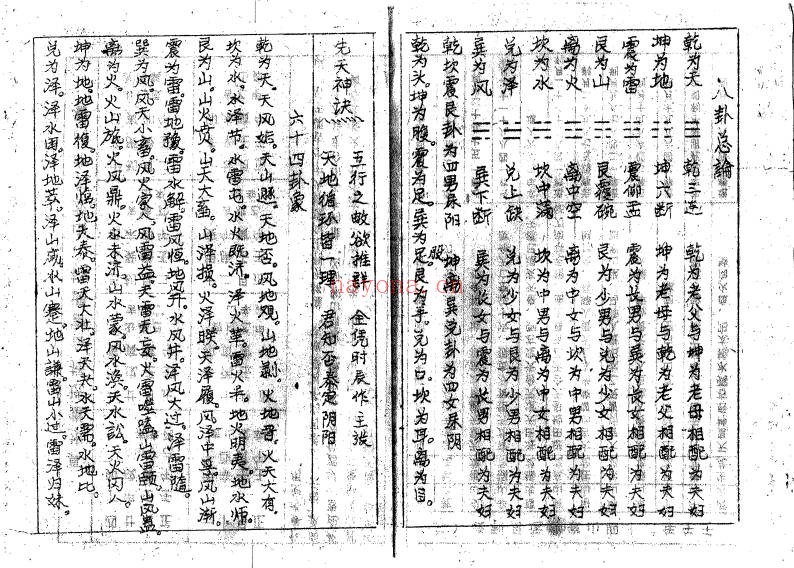 八卦总論
乾为天 ☰ 乾三连 乾为老父与坤为老母相配为夫妇
坤为地 ☷ 坤六断 坤为老母与乾为老父相配为夫妇
震为雷 ☳ 震仰盂 震为长男与巽为长女相配为夫妇
艮为山 ☶ 艮覆碗 艮为少男与兑为少女相配为夫妇
离为火 ☲ 离中空 离为中女与坎为中男相配为夫妇
坎为水 ☵ 坎中满 坎为中男与离为中女相配为夫妇
兑为泽 ☱ 兑上缺 兑为少女与艮为少男相配为夫妇
巽为风 ☴ 巽下断 巽为长女与震为长男相配为夫妇
乾坎震艮卦为四男属阳 坤离巽兑卦为四女属阴
乾为头。坤为腹。震为足。巽为股。艮为手。兑为口。坎为耳。离为目。
先天神诀
五行之敢欲推群 全凭时辰作主张
天地循环皆一理 君知否泰定阴阳
六十四卦象
乾为天。天风姤。天山遯。天地否。风地观。山地剥。火地晋。火天大有。
坎为水。水泽节。水雷屯。水火既济。泽火革。雷火丰。地火明夷。地水师。
艮为山。山火贲。山天大畜。山泽损。火泽睽。天泽履。风泽中孚。风山渐。
震为雷。雷地豫。雷水解。雷风恒。地风升。水风井。泽风大过。泽雷隨。
巽为风。风天小畜。风火家人。风雷益。天雷无妄。火雷噬嗑。山雷頤。山风蠱。
离为火。火山旅。火风鼎。火水未济。山水蒙。风水渙。天水訟。天火同人。
坤为地。地雷復。地泽临。地天泰。雷天大壮。泽天夬。水天需。水地比。
兑为泽。泽水困。泽地萃。泽山咸。水山蹇。地山謙。雷山小过。雷泽归妹。
nayona.cn